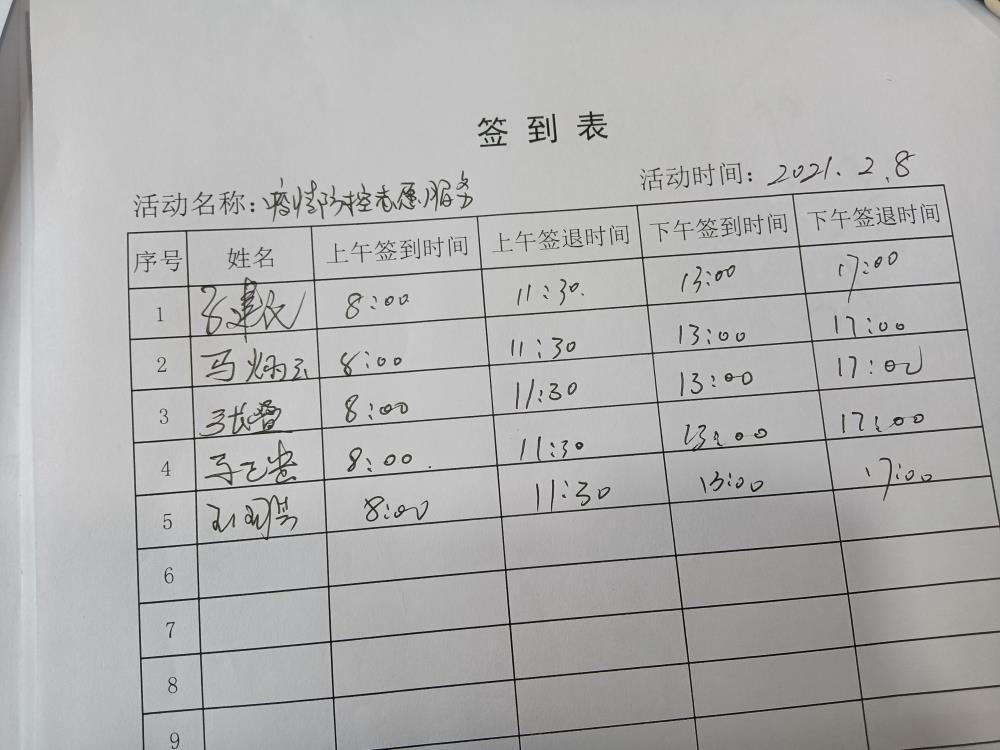 签到表
活动名称：疫情防控志愿服务 活动时间：2021.2.8
序号 姓名 上午签到时间 上午签退时间 下午签到时间 下午签退时间
1 8:00 11:30 13:00 17:00
2 马炳云 8:00 11:30 13:00 17:00
3 8:00 11:30 13:00 17:00
4 8:00 11:30 13:00 17:00
5 8:00 11:30 13:00 17:00
6
7
8
9